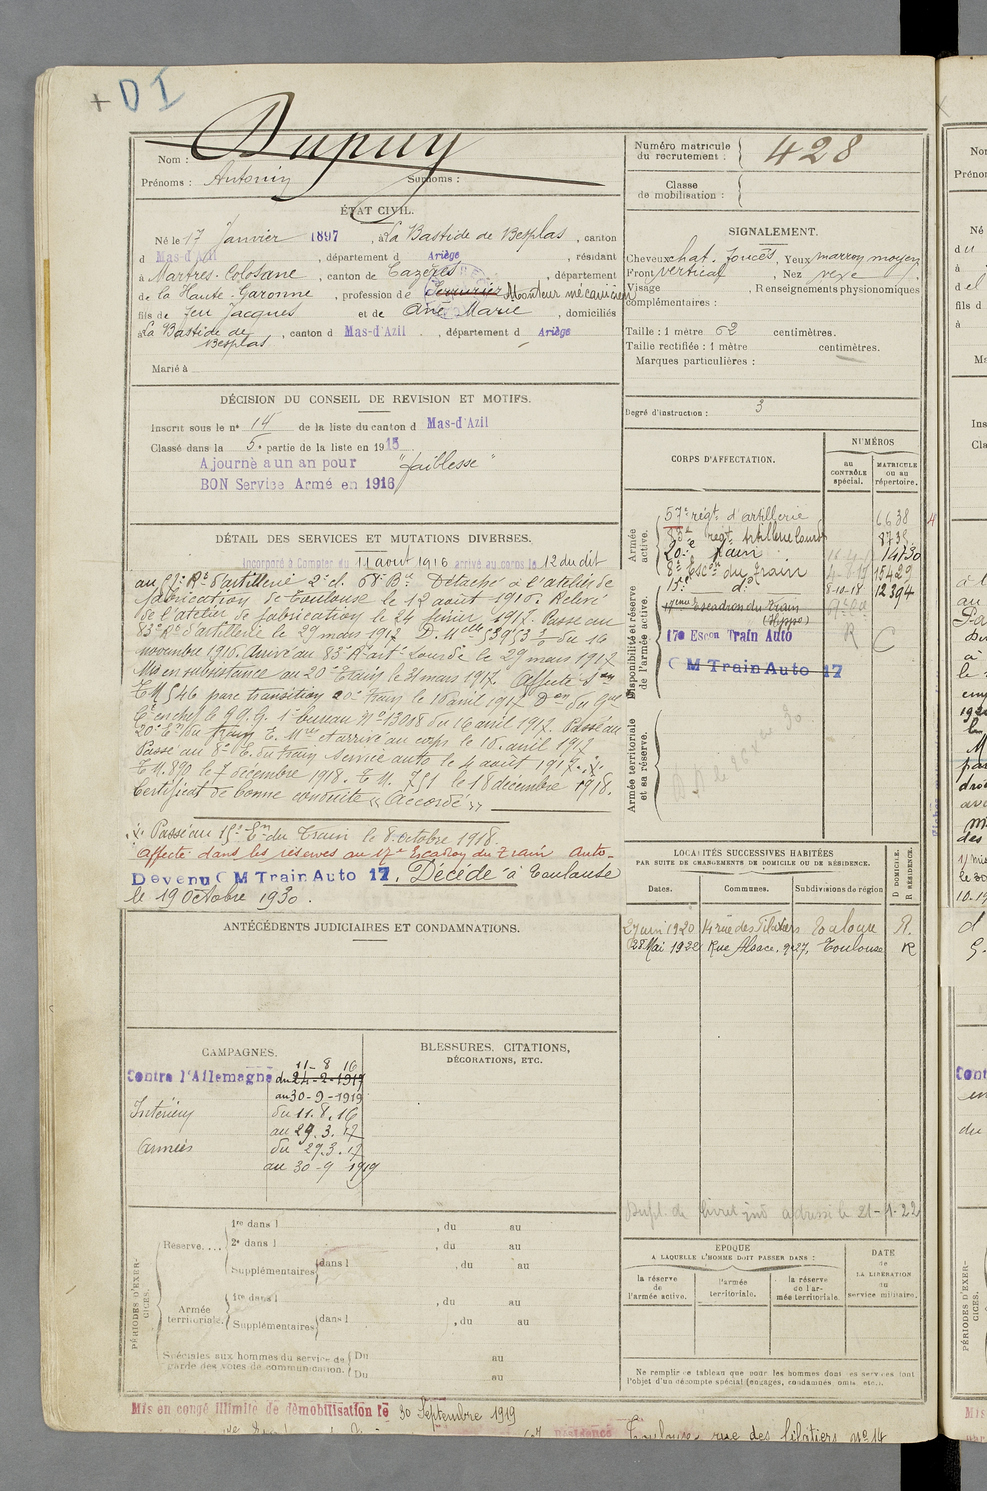 + D I
Nom : Dupuy
Prénoms : Antonin Surnoms :
ÉTAT CIVIL.
Né le 17 Janvier 1897, à La Bastide de Besplas, canton
d Mas-d'Azil, département d Ariège, résidant
à Martres-Tolosane, canton de Cazères, département
de la Haute-Garonne, profession de Serrurier Monteur mécanicien
fils de feu Jacques et de Ané Marie, domiciliés
à La Bastide de Besplas, canton d Mas-d'Azil, département d Ariège
Marié à
DÉCISION DU CONSEIL DE REVISION ET MOTIFS.
Inscrit sous le n° 14 de la liste du canton d Mas-d'Azil
Classé dans la 5e partie de la liste en 1915
Ajourné a un an pour "faiblesse"
BON Service Armé en 1916
DÉTAIL DES SERVICES ET MUTATIONS DIVERSES.
Incorporé à Compter du 11 aout 1916 arrivé au corps le 12 du dit
au 57e Rt d'artillerie 2e cl. 68e Bie Détaché à l'atelier de
fabrication de Toulouse le 12 août 1916. Relevé
de l'atelier de fabrication le 24 février 1917. Passé au
83e Rt d'artillerie le 29 mars 1917 D. Mlle 53953 du 16
novembre 1916. Arrivé au 83e Rt art. Lourde le 29 mars 1917
Mis en subsistance au 20e E train le 31 mars 1917. Affecté
T.M. 546 parc transition 20e train le 16 avril 1917 Don du Gral
Ct en chef le G.Q.G. 1er bureau No 13018 du 16 avril 1917. Passé au
20e En du train T. M. et arrivé au corps le 16 avril 1917
Passé au 8e E. du train Service auto le 4 aout 1917
T.M. 890 le 7 décembre 1918. T. M. 751 le 18 décembre 1918.
Certificat de bonne conduite "Accordé"
Passé au 15e En du Train le 8 octobre 1918
Affecté dans les réserves au 17e Escadron du train Auto-
Devenu C M Train Auto 17. Décédé à Toulouse
le 19 Octobre 1930.
ANTÉCÉDENTS JUDICIAIRES ET CONDAMNATIONS.
CAMPAGNES.
Contre l'Allemagne
11-8 16
du 24-2-1917
au 30-9-1919
Intérieur du 11.8.16
au 29.3.17
Armées du 29.3.17
au 30-9 1919
BLESSURES, CITATIONS,
DÉCORATIONS, ETC.
PÉRIODES D'EXERCICES.
Réserve, ... 1re dans l , du au
2e dans l , du au
Supplémentaires dans l , du au
Armée territoriale. 1re dans l , du au
Supplémentaires dans l , du au
Spéciales aux hommes du service de garde des voies de communication. Du au
Du au
Mis en congé illimité de démobilisation le 30 Septembre 1919
Toulouse rue des filatiers no 14
Numéro matricule
du recrutement : 428
Classe
de mobilisation :
SIGNALEMENT.
Cheveux chat. foncés, Yeux marron moyen
Front vertical, Nez
Visage , Renseignements physionomiques
complémentaires :
Taille : 1 mètre 62 centimètres.
Taille rectifiée : 1 mètre centimètres.
Marques particulières :
Degré d'instruction : 3
CORPS D'AFFECTATION.
NUMÉROS
au CONTRÔLE spécial.
MATRICULE ou au répertoire.
Armée active.
57e régt d'artillerie 6638
83e régt Artillerie lourde 8738
20e train 14730
8e Escon du train 15429
15e do 8-10-18 12394
Disponibilité et réserve de l'armée active.
17eme Escadron du Train (Hippo)
17e Escon Train Auto R C
C M Train Auto 17
Armée territoriale et sa réserve.
LOCALITÉS SUCCESSIVES HABITÉES
PAR SUITE DE CHANGEMENTS DE DOMICILE OU DE RÉSIDENCE.
Dates. Communes. Subdivisions de région D DOMICILE. R RÉSIDENCE.
2 Juin 1920 14 rue des Filatiers Toulouse R.
28 Mai 1922 Rue Alsace, no 27, Toulouse R
Dupl. de livret ind adressé le 21-1-22
EPOQUE
A LAQUELLE L'HOMME DOIT PASSER DANS :
la réserve de l'armée active.
l'armée territoriale.
la réserve de l'armée territoriale.
DATE DE LA LIBÉRATION du service militaire.
Ne remplir ce tableau que pour les hommes dont les services font
l'objet d'un décompte spécial (engagés, condamnés, omis, etc...